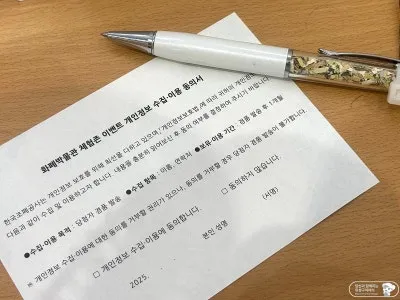 화폐박물관 체험존 이벤트 개인정보 수집·이용 동의서
한국조폐공사는 개인정보 보호를 위해 최선을 다하고 있으며, 「개인정보보호법」에 따라 귀하의 개인정보를
다음과 같이 수집 및 이용하고자 합니다. 내용을 충분히 읽어보신 후 동의 여부를 결정하여 주시기 바랍니다.
●수집·이용 목적 : 당첨자 경품 발송 ●수집 항목 : 이름, 연락처 ●보유·이용 기간 : 경품 발송 후 1개월
※ 개인정보 수집·이용에 대한 동의를 거부할 권리가 있으나, 동의를 거부할 경우 당첨자 경품 발송이 불가합니다.
□ 개인정보 수집·이용에 동의합니다. □ 동의하지 않습니다.
2025. 본인 성명 (서명)